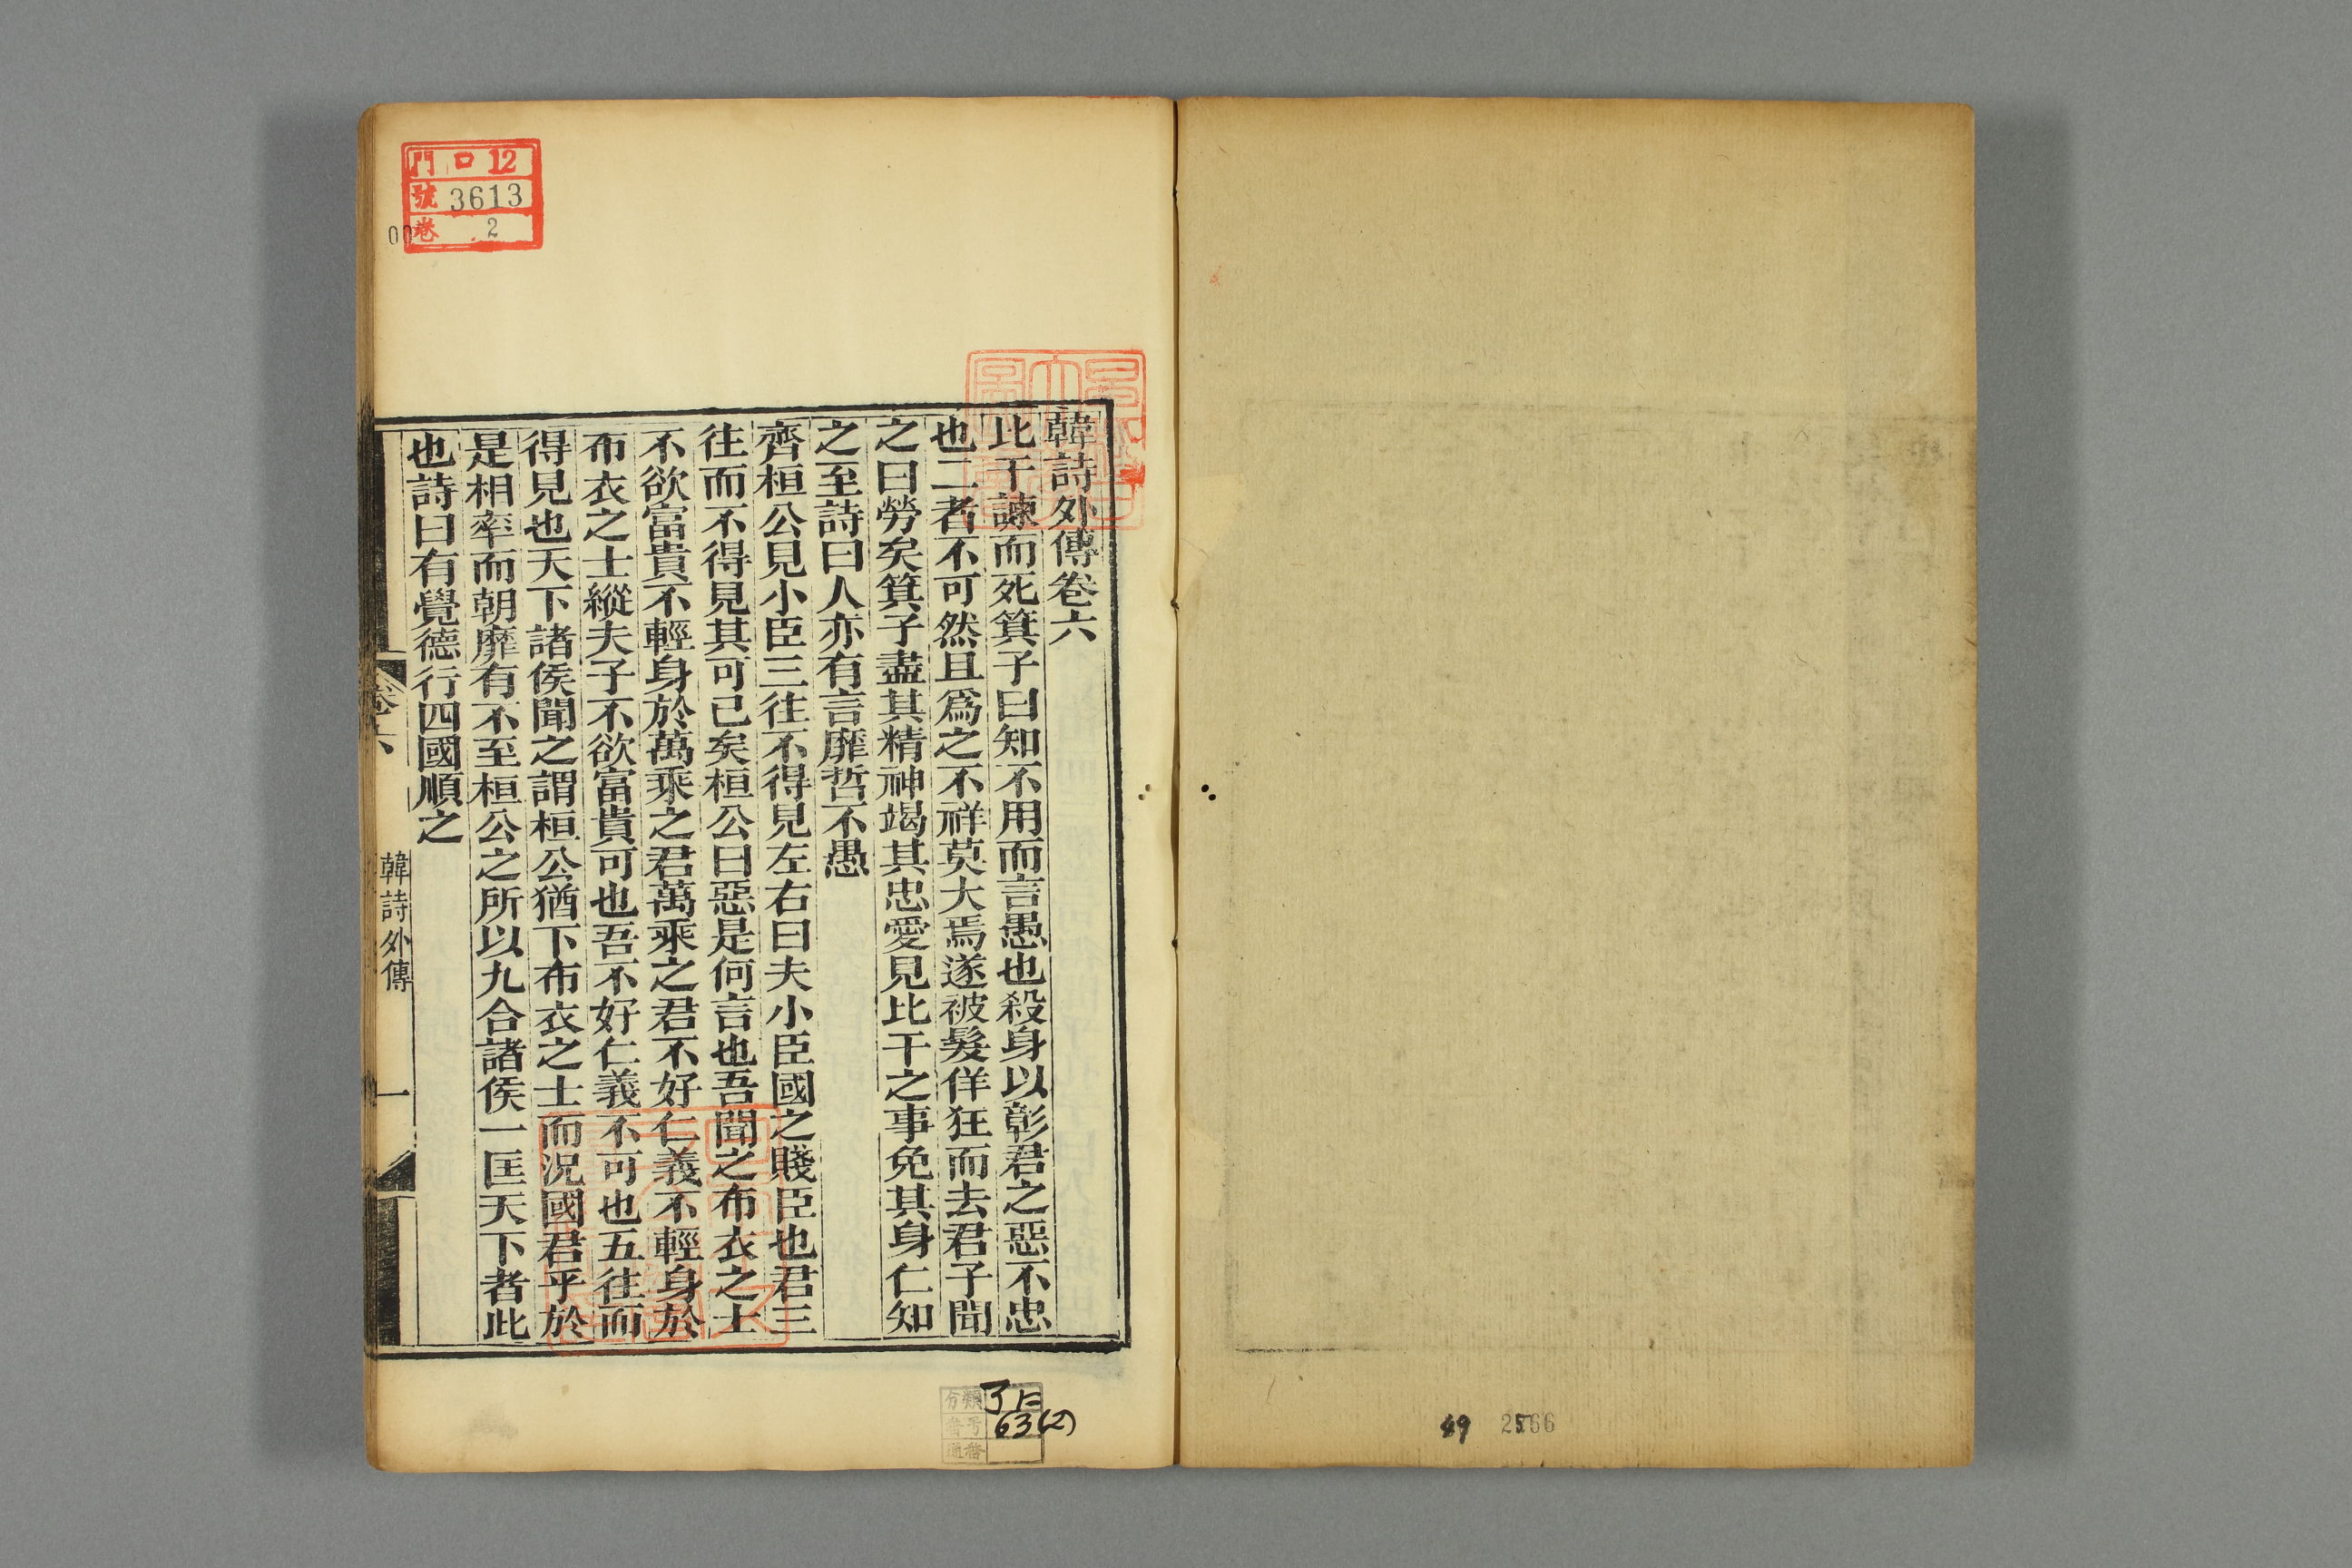 韓詩外傳卷六
比干諫而死箕子曰知不用而言愚也殺身以彰君之惡不忠
也二者不可然且爲之不祥莫大焉遂被髮佯狂而去君子聞
之曰勞矣箕子盡其精神竭其忠愛見比干之事免其身仁知
之至詩曰人亦有言靡哲不愚
齊桓公見小臣三往不得見左右曰夫小臣國之賤臣也君三
往而不得見其可已矣桓公曰惡是何言也吾聞之布衣之士
不欲富貴不輕身於萬乘之君萬乘之君不好仁義不輕身於
布衣之士縱夫子不欲富貴可也吾不好仁義不可也五往而
得見也天下諸侯聞之謂桓公猶下布衣之士而況國君乎於
是相率而朝靡有不至桓公之所以九合諸侯一匡天下者此
也詩曰有覺德行四國順之
卷六
韓詩外傳
一
門 口 12
號 3613
卷 2
分類
番号
63(2)
49